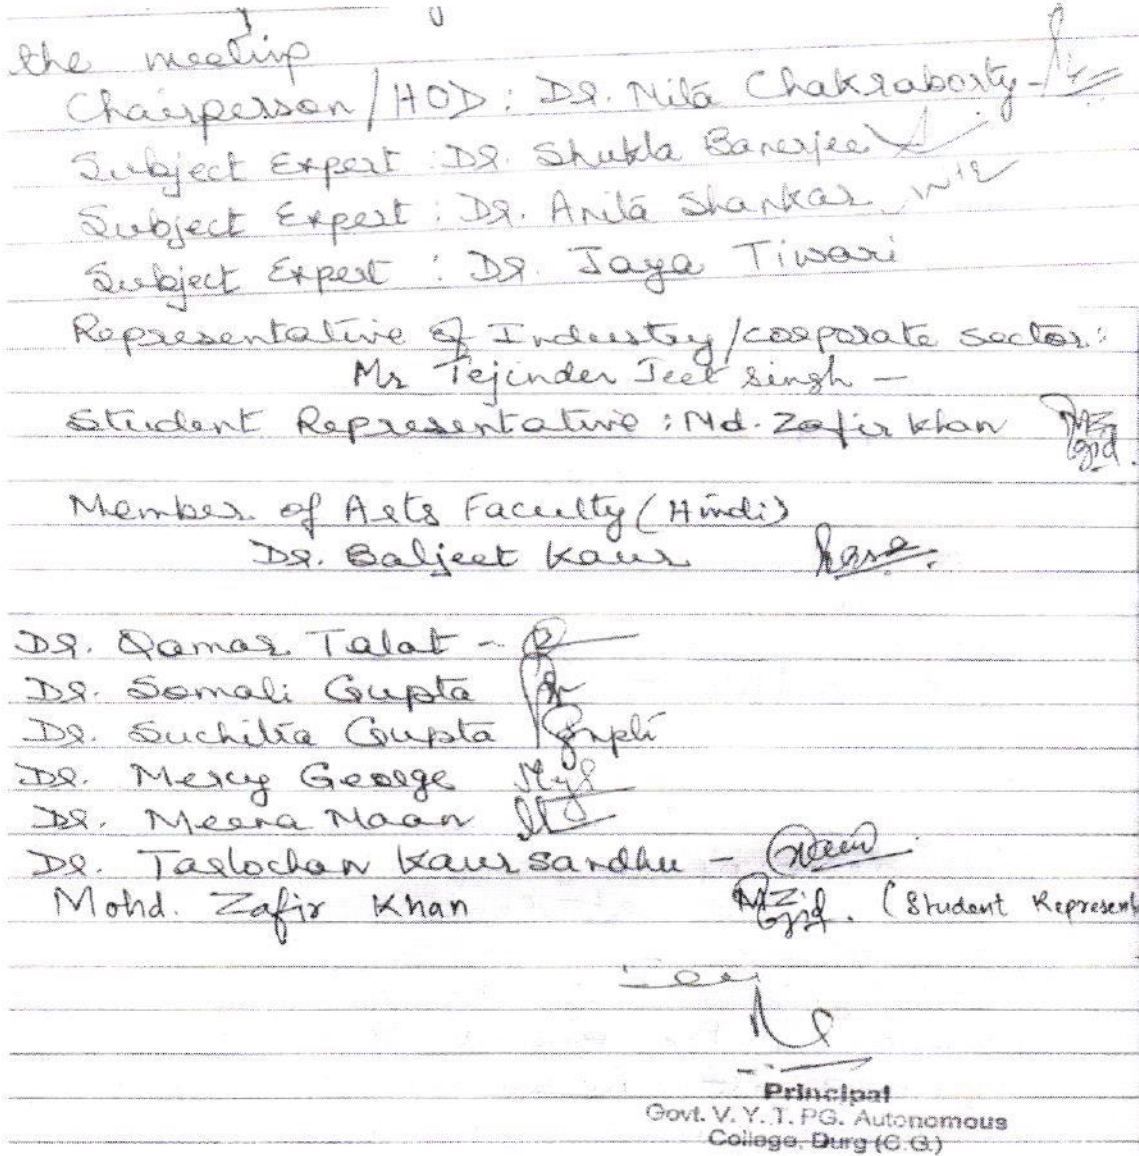 the meeting
Chairperson/HOD: Dr. Nita Chakraborty -
Subject Expert: Dr. Shukla Banerjee
Subject Expert: Dr. Anita Shankar
Subject Expert: Dr. Jaya Tiwari
Representative of Industry/corporate sector:
Mr Tejinder Jeet Singh -
Student Representative: Md. Zafir Khan
Member of Arts Faculty (Hindi)
Dr. Baljeet Kaur
Dr. Qamar Talat -
Dr. Somali Gupta
Dr. Suchitra Gupta
Dr. Mercy George
Dr. Meera Maan
Dr. Tarlochan Kaur Sandhu -
Mohd. Zafir Khan (Student Represent
Principal
Govt. V. Y. T. PG. Autonomous
College, Durg (C.G.)